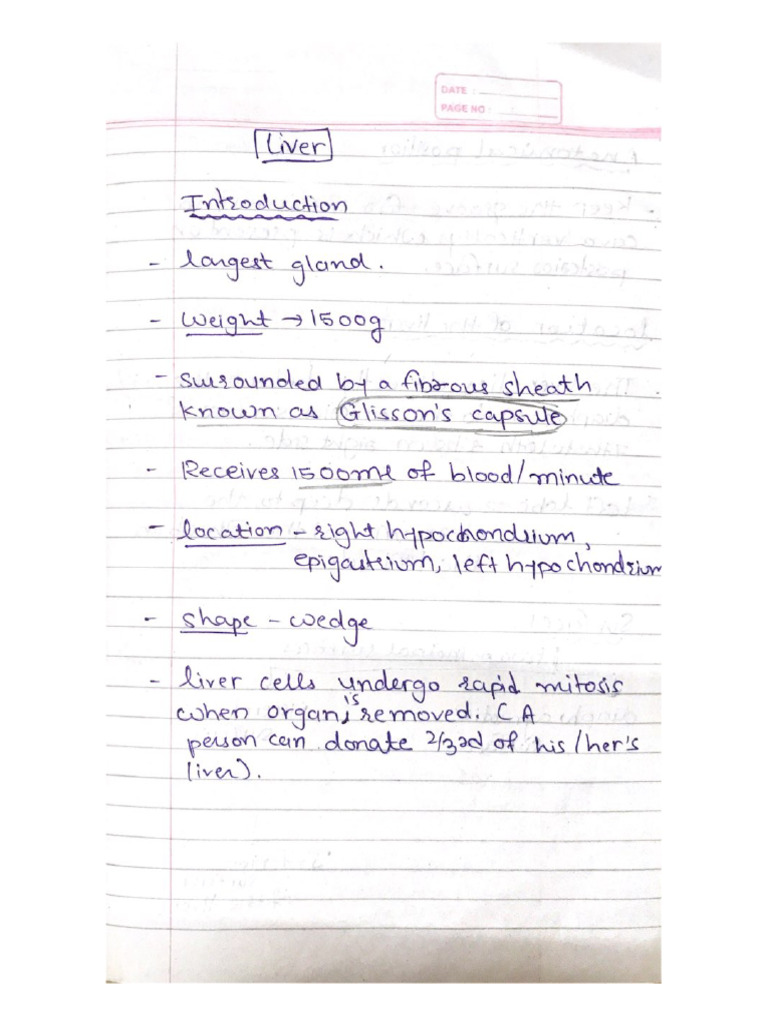 DATE :
PAGE NO :
Liver
Introduction
- largest gland.
- weight → 1500g
- Surrounded by a fibrous sheath
known as Glisson's capsule
- Receives 1500ml of blood/minute
- location - right hypochondrium,
epigastrium, left hypochondrium
- shape - wedge
- liver cells undergo rapid mitosis
when organ is removed. (A
person can donate 2/3rd of his/her's
liver).